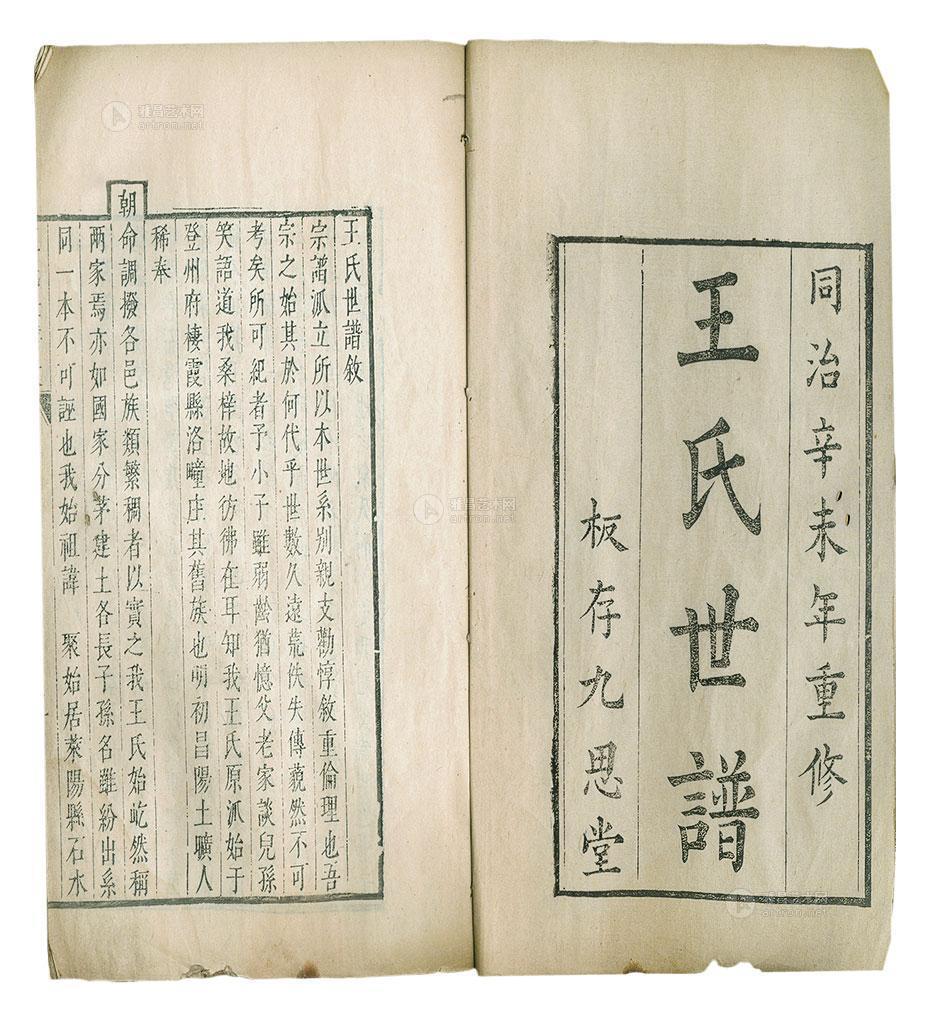 同治辛未年重修
王氏世譜
板存九思堂
王氏世譜敘
宗譜派立所以本世系別親支勸惇敘重倫理也吾
宗之始其於何代乎世數久遠荒佚失傳藐然不可
考矣所可紀者予小子雖弱齡猶憶父老家談兒孫
笑語道我桑梓故地彷彿在耳知我王氏原派始于
登州府棲霞縣洛疃庄其舊族也明初昌陽土曠人
稀奉
朝命調撥各邑族類繁稠者以實之我王氏始屹然稱
兩家焉亦如國家分茅建土各長子孫名雖紛出系
同一本不可誣也我始祖諱 聚始居萊陽縣石水
雅昌艺术网
artron.net
雅昌艺术网
artron.net
雅昌艺术网
artron.net